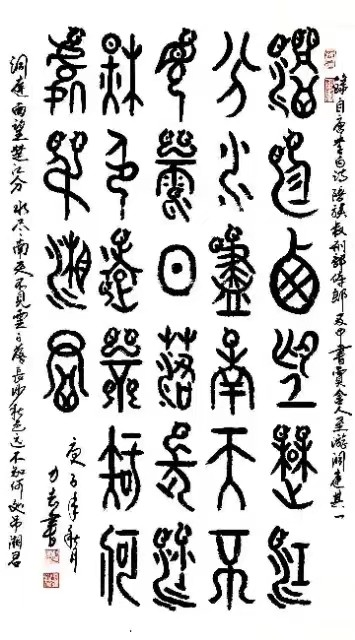 錄自唐李白詩陪族叔刑部侍郎及中書賈舍人至游洞庭其一
洞庭西望楚江
分水盡南天不
見雲日落長沙
秋色遠不知何
處弔湘君
庚子年秋月
書
洞庭西望楚江分水尽南天不見雲日落長沙秋色远不知何處吊湘君